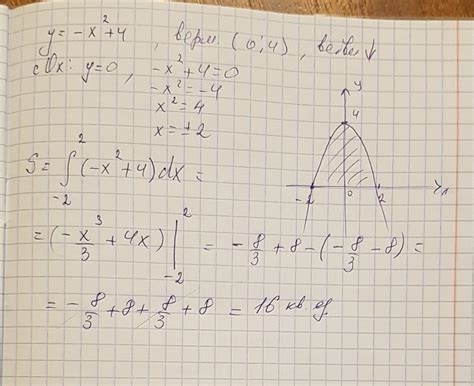 y = -x² + 4 , верш. (0; 4) , ветви ↓
с Ox: y = 0 , -x² + 4 = 0
-x² = -4
x² = 4
x = ± 2
S = ∫₋₂² (-x² + 4) dx =
= (-x³/3 + 4x) |₋₂² = -8/3 + 8 - (-8/3 - 8) =
= -8/3 + 8 + 8/3 + 8 = 16 кв ед.
y
4
-2 0 2 x